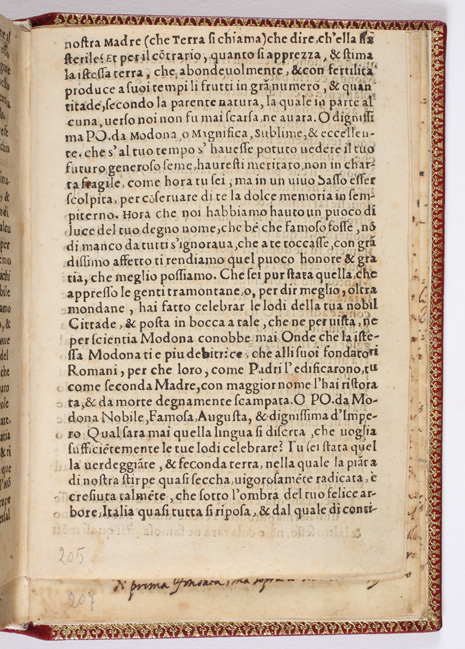 nostra Madre (che Terra si chiama)che dire, ch'ella sia
sterile? Et per il cōtrario, quanto si apprezza, & stima
la istessa terra, che, abondeuolmente, &con fertilità
produce a suoi tempi li frutti in grā numero, & quan
titade, secondo la parente natura, la quale in parte al
cuna, uerso noi non fu mai scarsa, ne auara. O dignissi
ma PO. da Modona, o Magnifica, Sublime, & eccellen-
te. che s'al tuo tempo s'hauesse potuto uedere il tuo
futuro generoso seme, hauresti meritato, non in char-
ta fragile, come hora tu sei, ma in un uiuo Sasso esser
scolpita, per cōseruare di te la dolce memoria in sem-
piterno. Hora che noi habbiamo hauto un puoco di
luce del tuo degno nome, che bē che famoso fosse, nō
di manco da tutti s'ignoraua, che a te toccasse, con grā
dissimo affetto ti rendiamo quel puoco honore & gra
tia, che meglio possiamo. Che sei pur stata quella, che
appresso le genti tramontane, o, per dir meglio, oltra
mondane, hai fatto celebrar le lodi della tua nobil
Cittade, & posta in bocca a tale, che ne per uista, ne
per scientia Modona conobbe mai Onde che la iste-
ssa Modona ti e piu debitrice, che alli suoi fondatori
Romani, per che loro, come Padri l'edificarono, tu
come seconda Madre, con maggior nome l'hai ristora
ta, & da morte degnamente scampata. O PO. da Mo-
dona Nobile, Famosa, Augusta, & dignissima d'Impe-
ro Qual sara mai quella lingua si diserta, che uoglia
sufficiētemente le tue lodi celebrare? Tu sei stata quel
la uerdeggiāte, & feconda terra, nella quale la piāta
di nostra stirpe quasi seccha, uigorosamēte radicata, e
cresiuta talmēte, che sotto l'ombra del tuo felice ar-
bore, Italia quasi tutta si riposa, & dal quale di conti-
205
di prima
207